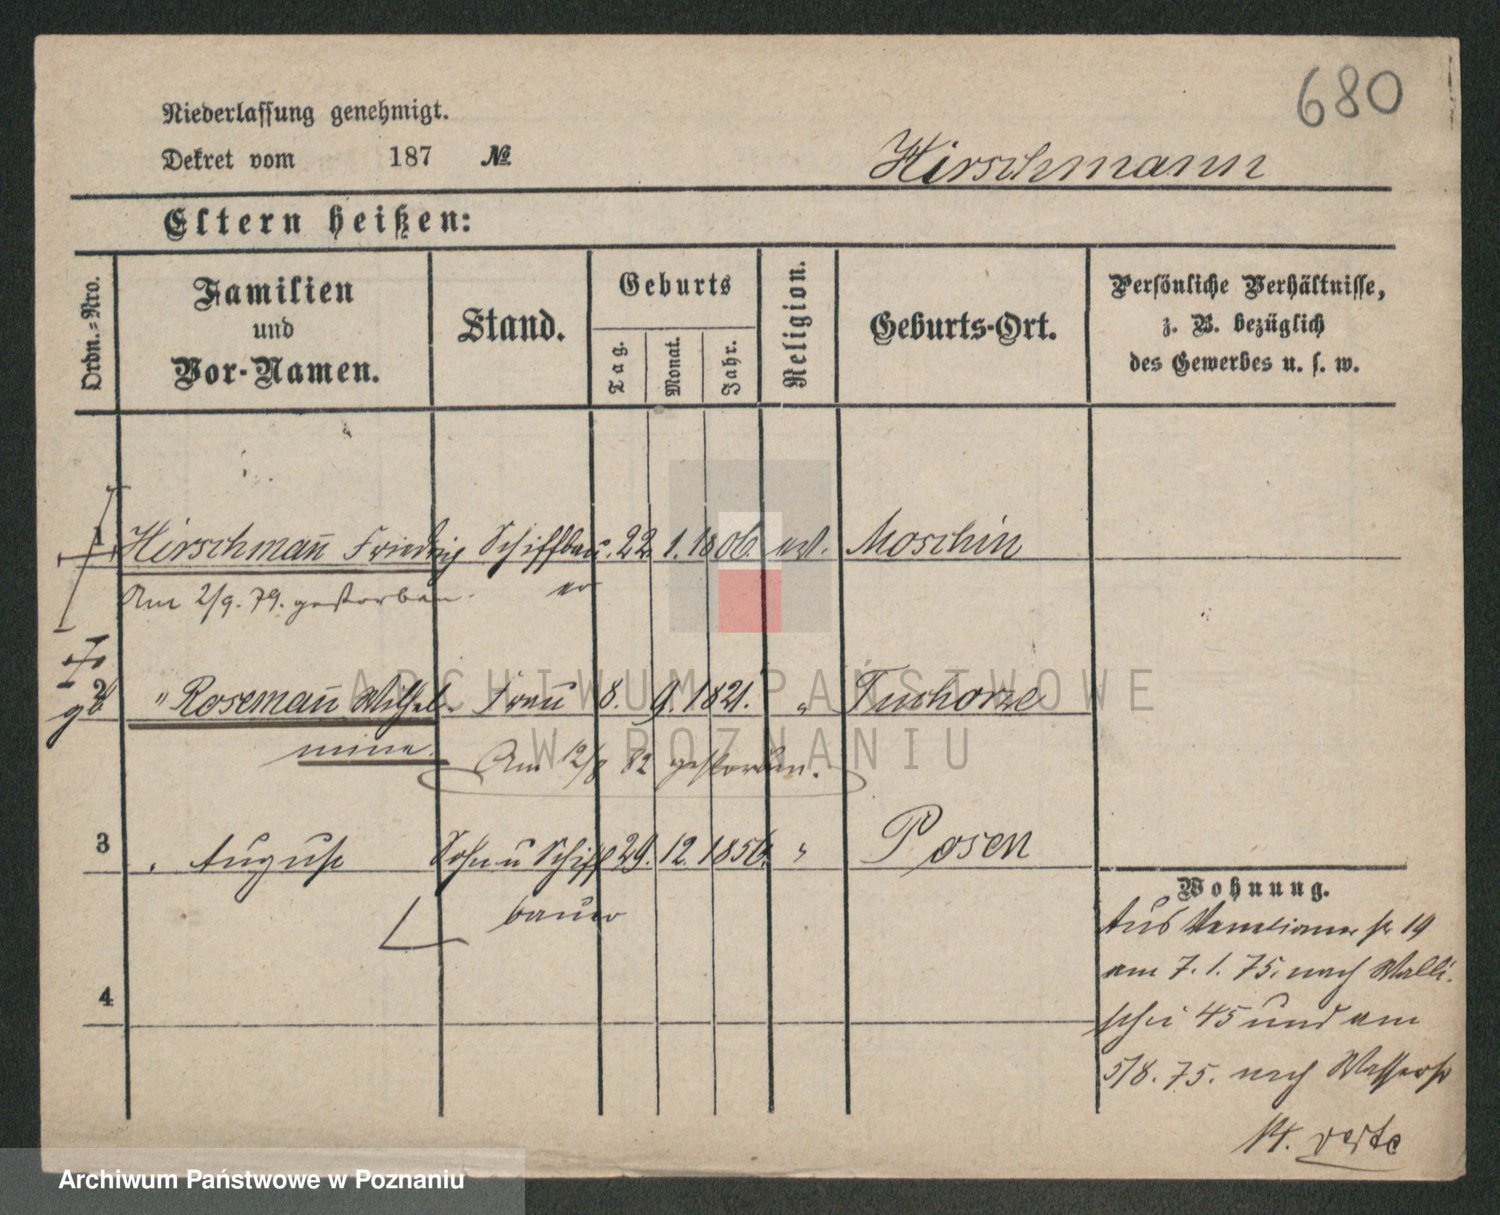 680
Niederlassung genehmigt.
Dekret vom 187 №
Hirschmann
Eltern heißen:
Ordn.=Nro.
Familien
und
Vor-Namen.
Stand.
Geburts
Tag.
Monat.
Jahr.
Religion.
Geburts-Ort.
Persönliche Verhältnisse,
z. B. bezüglich
des Gewerbes u. s. w.
1 Hirschmann̄ Friedrich Schiffbau 22. 1. 1806. ev. Moschin
er
Am 2/9. 79. gestorben.
2 " Rosemann̄ Wilhel- Frau 8. 9. 1821. " Tuchorze
mine.
Am 12/8 82 gestorben.
3 " August Sohn u Schiff 29. 12. 1856. " Posen
bauer
4
Wohnung.
Aus Venetianer str 19
am 7. 1. 75. nach Walli-
schei 45 und am
5/8. 75. nach Wasserstr
14. verte
ARCHIWUM PAŃSTWOWE
W POZNANIU
Archiwum Państwowe w Poznaniu